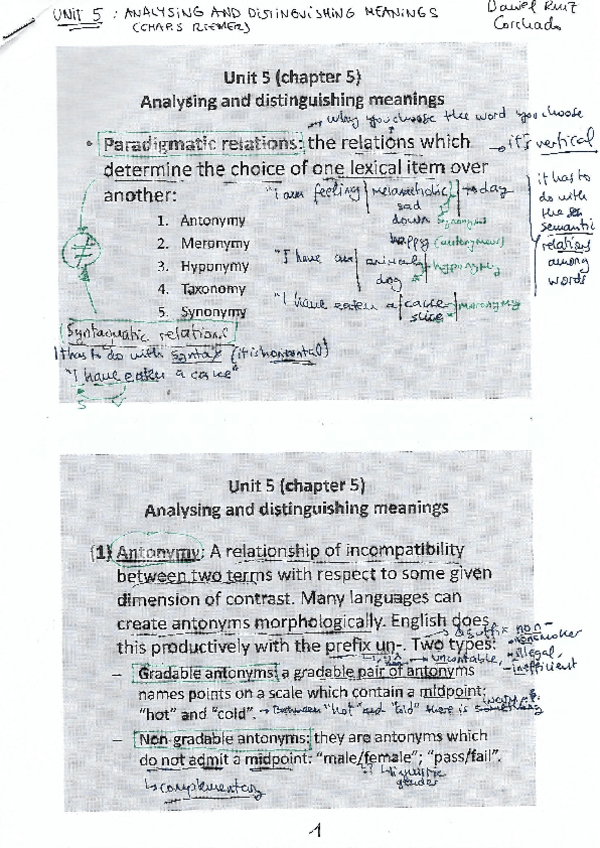 UNIT 5 : ANALYSING AND DISTINGUISHING MEANINGS
(CHAP.5 RIEMER)
Daniel Ruiz
Corchado
Unit 5 (chapter 5)
Analysing and distinguishing meanings
why you choose the word you choose
• Paradigmatic relations: the relations which
→ it's vertical
determine the choice of one lexical item over
another:
"I am feeling | melancholic | today
sad
down synonyms
happy (antonymous)
it has to
do with
the
semantic
relations
among
words
1. Antonymy
2. Meronymy
3. Hyponymy
4. Taxonomy
5. Synonymy
"I have an | animal | hyponymy
dog
"I have eaten a | cake | meronymy
slice
≠
Syntagmatic relations
It has to do with syntax (it is horizontal)
"I have eaten a cake"
S V
Unit 5 (chapter 5)
Analysing and distinguishing meanings
(1) Antonymy: A relationship of incompatibility
between two terms with respect to some given
dimension of contrast. Many languages can
create antonyms morphologically. English does
this productively with the prefix un-. Two types:
non-
illegal,
uncountable,
inefficient
– Gradable antonyms: a gradable pair of antonyms
names points on a scale which contain a midpoint:
"hot" and "cold". → Between "hot" and "cold" there is something
– Non-gradable antonyms: they are antonyms which
do not admit a midpoint: "male/female"; "pass/fail".
↳ complementary
↳ linguistic
gender
1